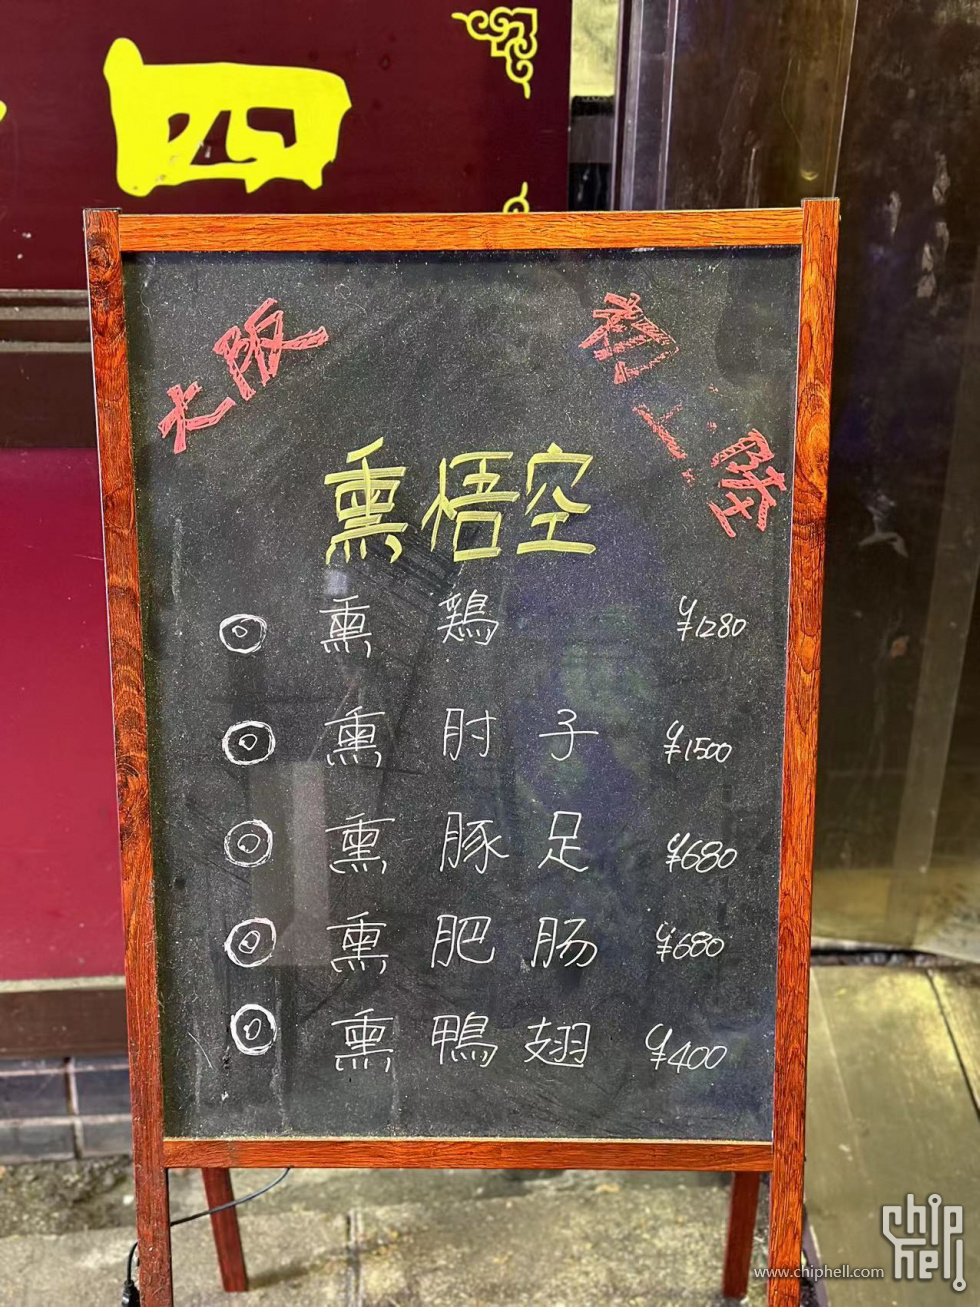 四
大阪
初上陸
熏悟空
熏鶏 ¥1280
熏肘子 ¥1500
熏豚足 ¥680
熏肥肠 ¥680
熏鴨翅 ¥400
chip
hell
www.chiphell.com